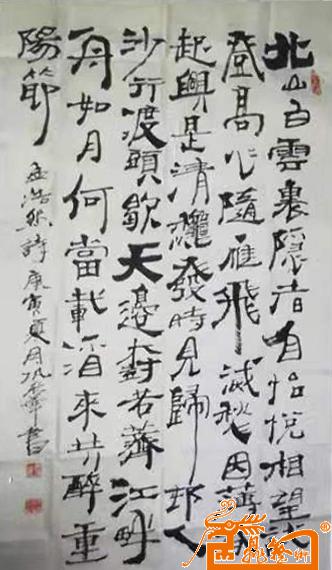 北山白雲裏隱者自怡悅相望試
登高心隨雁飛滅愁因薄暮
起興是清龝發時見歸邨人
沙行渡頭歇天邊樹若薺江畔
舟如月何當載酒來共醉重
陽節
孟浩然詩庚寅夏月書